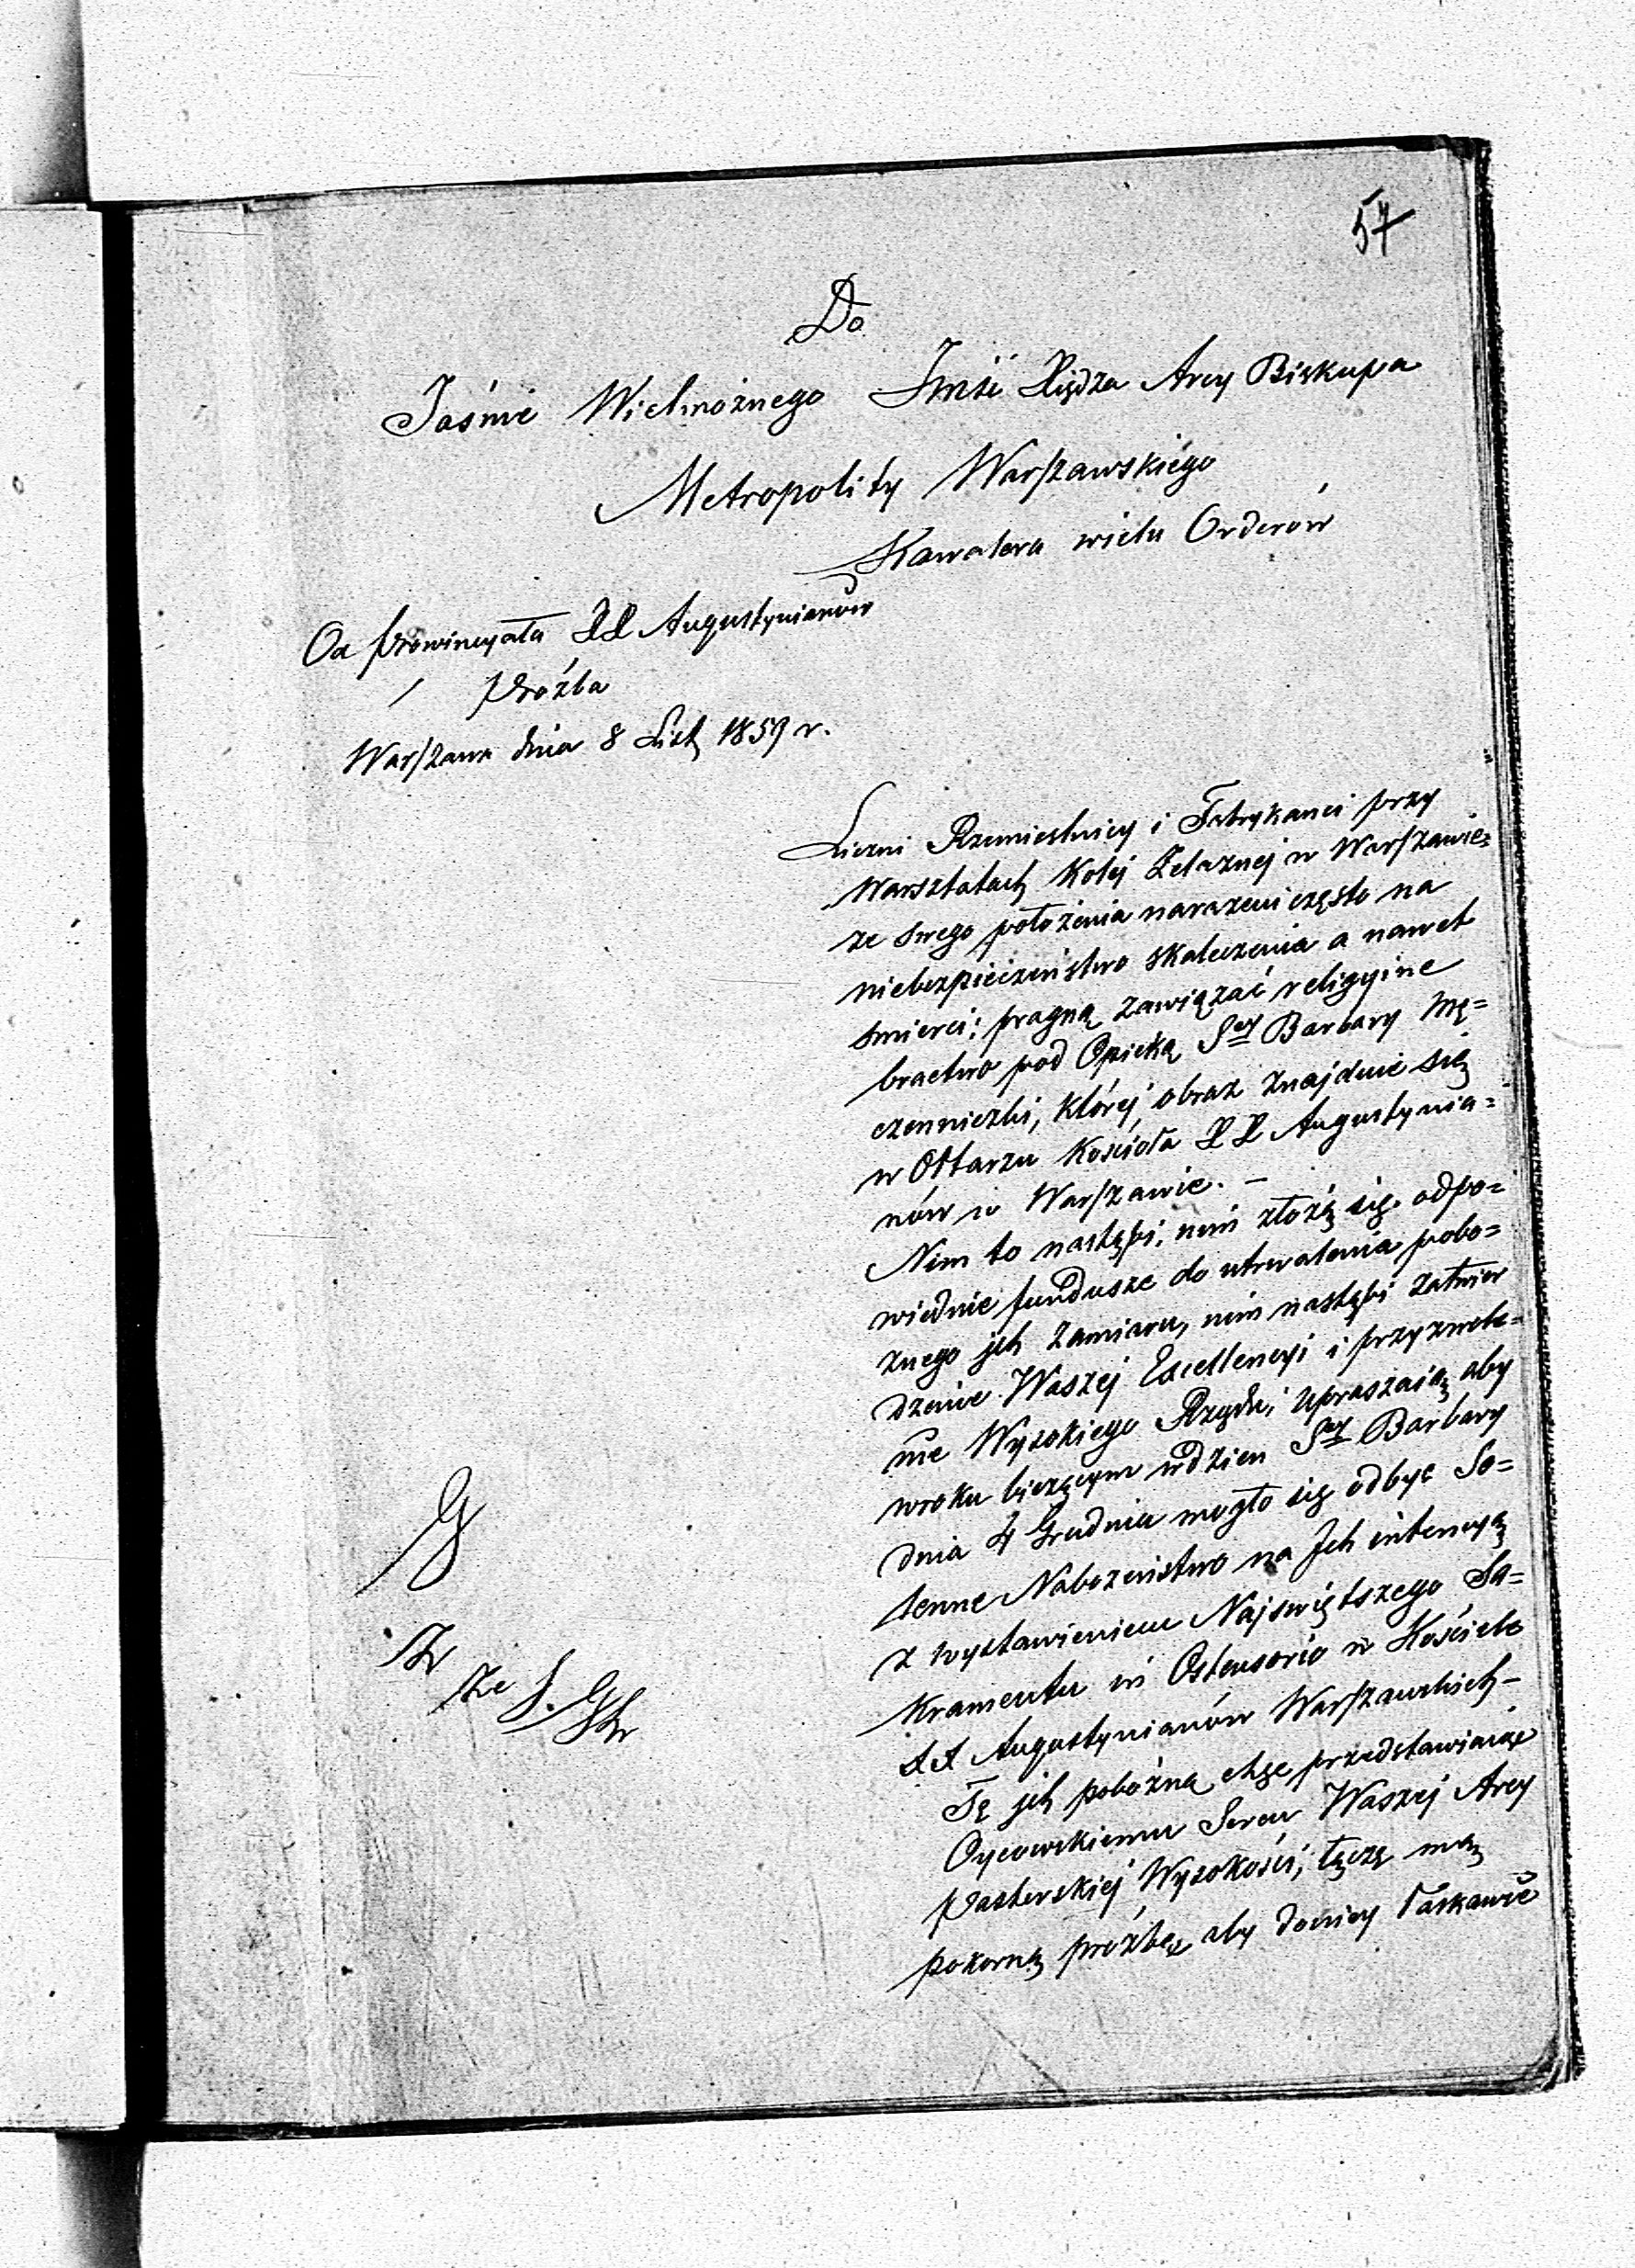 57
Do
Jaśnie Wielmożnego Jmści Xiędza Arcy Biskupa
Metropolity Warszawskiego
Kawalera wielu Orderów
Od Prowincyała XX Augustynianów
Prośba
Warszawa dnia 8 List 1859 r.
Liczni Rzemieslnicy i Fabrykanci przy
Warsztatach Kolej Żelaznej w Warszawie
ze swego położenia narażeni często na
niebezpieczeństwo skaleczenia a nawet
śmierci; pragną zawiązać religyine
bractwo pod Opieką Sey Barbary Mę=
czenniczki, której obraz znajduie się
w Ołtarzu Kościoła XX Augustynia=
nów w Warszawie. –
Nim to nastąpi, nim złożą się odpo=
wiednie fundusze do utrwalenia pobo=
żnego jch zamiaru, nim nastąpi zatwier
dzenie Waszej Excellencyi i przyzwole=
nie Wysokiego Rządu, upraszaią aby
wroku bieżącym wdzien Sey Barbary
dnia 4 Grudnia mogło się odbyć So=
lenne Nabożeństwo na Jch intencyą
z wystawieniem Najswiętszego Sa=
kramentu in Ostensorio w Kościele
XX Augustynianów Warszawskich –
Tę jch pobożną chęc przedstawiaiąc
Oycowskiemu Sercu Waszej Arcy
Pasterskiej Wysokości, łączę mą
pokorną prośbę aby Joniey łaskawie